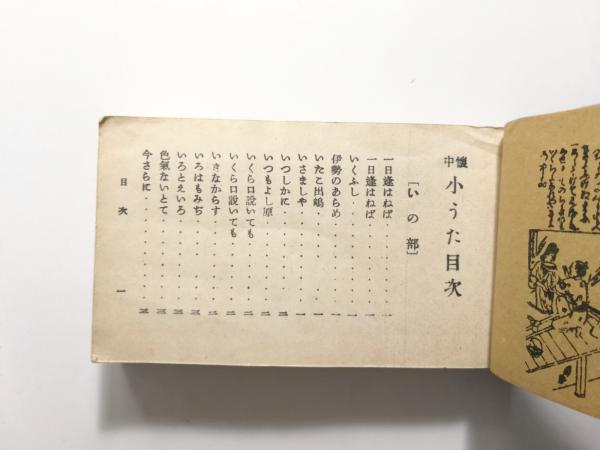 懐中 小うた目次
〔いの部〕
一日逢はねば・・・・・・・・一
一日逢はねば・・・・・・・・一
いくふし・・・・・・・・・・一
伊勢のあらめ・・・・・・・・一
いたこ出嶋・・・・・・・・・一
いさましや・・・・・・・・・一
いつしかに・・・・・・・・・二
いつもよし原・・・・・・・・二
いくら口説いても・・・・・・二
いくら口説いても・・・・・・二
いきなからす・・・・・・・・二
いろはもみぢ・・・・・・・・三
いろとえいろ・・・・・・・・三
色氣ないとて・・・・・・・・三
今さらに・・・・・・・・・・三
目次 一